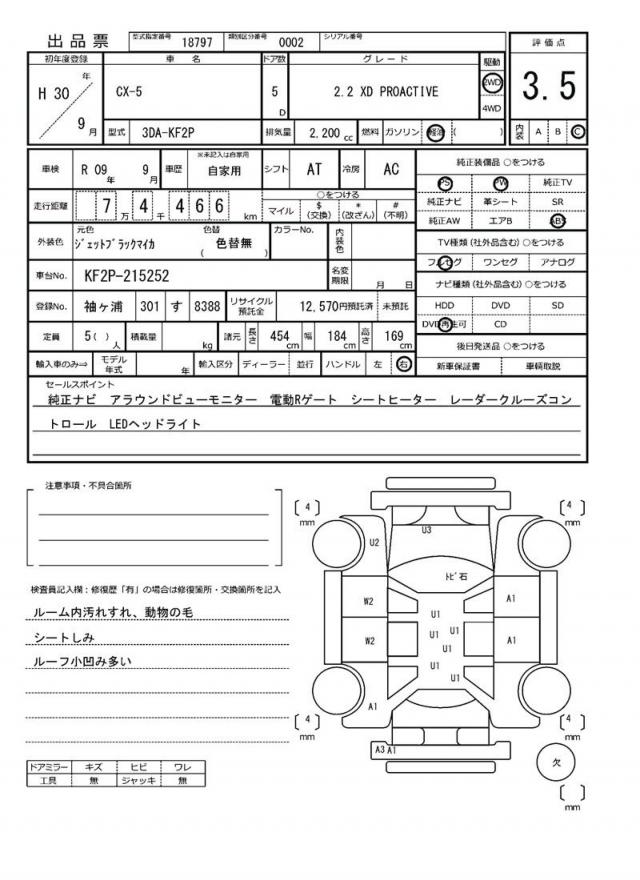 出品票 型式指定番号 18797 類別区分番号 0002 シリアル番号
初年度登録 車名 ドア数 グレード 駆動 評価点
H 30 年 9 月 CX-5 5 D 2.2 XD PROACTIVE 2WD 4WD 3.5
型式 3DA-KF2P 排気量 2,200 cc 燃料 ガソリン 軽油 ( ) 内装 A B C
車検 R 09 年 9 月 車歴 ※未記入は自家用 自家用 シフト AT 冷房 AC
純正装備品 ○をつける
PS PW 純正TV
純正ナビ 革シート SR
純正AW エアB ABS
走行距離 7 万 4 千 4 6 6 km
○をつける
マイル $ (交換) * (改ざん) # (不明)
外装色 元色 ジェットブラックマイカ 色替 ( 色替無 ) カラーNo. 内装色
TV種類 (社外品含む) ○をつける
フルセグ ワンセグ アナログ
車台No. KF2P-215252 名変期限 月 日
ナビ種類 (社外品含む) ○をつける
HDD DVD SD
DVD再生可 CD
登録No. 袖ヶ浦 301 す 8388 リサイクル預託金 12,570円預託済 未預託
定員 5( ) 人 積載量 kg 諸元 長さ 454 cm 幅 184 cm 高さ 169 cm
後日発送品 ○をつける
新車保証書 車輌取説
輸入車のみ⇒ モデル年式 年 輸入区分 ディーラー 並行 ハンドル 左 右
セールスポイント
純正ナビ アラウンドビューモニター 電動Rゲート シートヒーター レーダークルーズコン
トロール LEDヘッドライト
注意事項・不具合箇所
検査員記入欄：修復歴「有」の場合は修復箇所・交換箇所を記入
ルーム内汚れすれ、動物の毛
シートしみ
ルーフ小凹み多い
ドアミラー キズ ヒビ ワレ
工具 無 ジャッキ 無
[ 4 ] mm
[ 4 ] mm
U3
U2
トビ石
W2
A1
U1
U1 U1
W2
U1
A1
U1
U1
A1
[ 4 ] mm
[ 4 ] mm
A3 A1
欠
[ ] mm